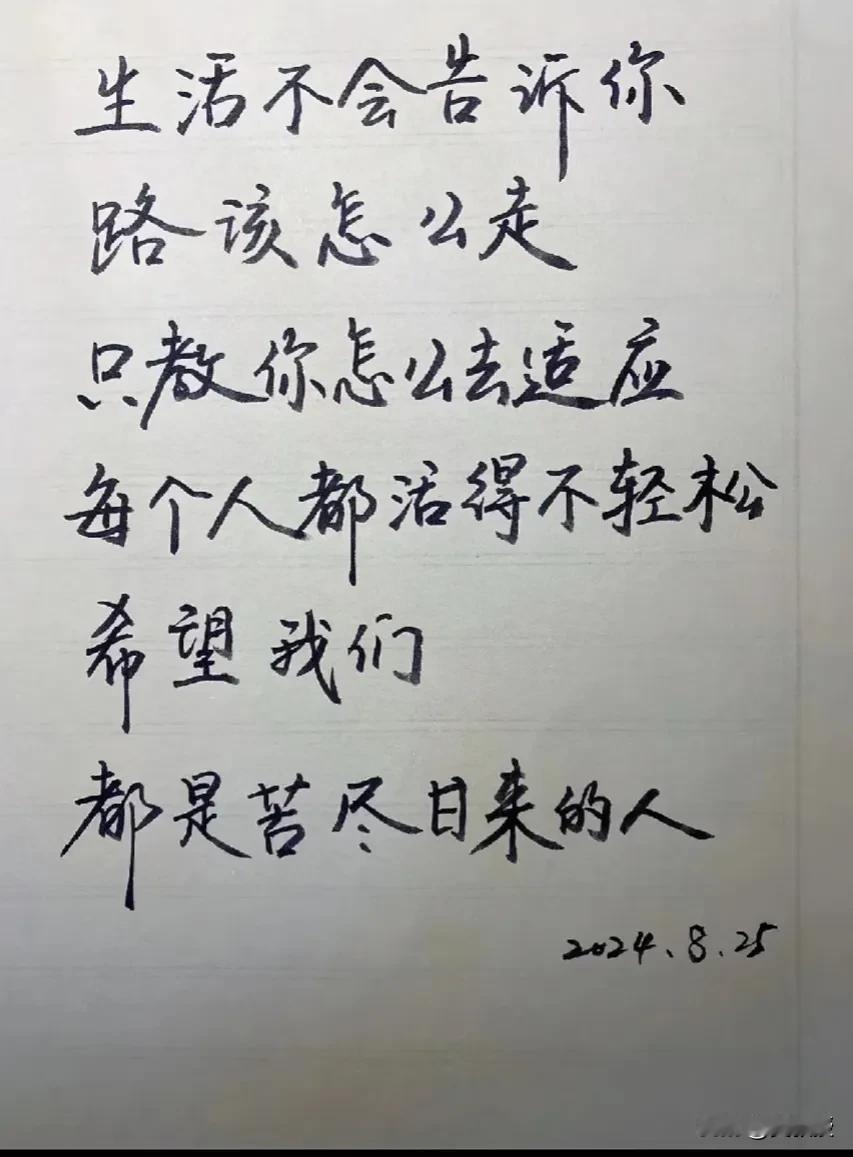 生活不会告诉你
路该怎么走
只教你怎么去适应
每个人都活得不轻松
希望我们
都是苦尽甘来的人
2024.8.25